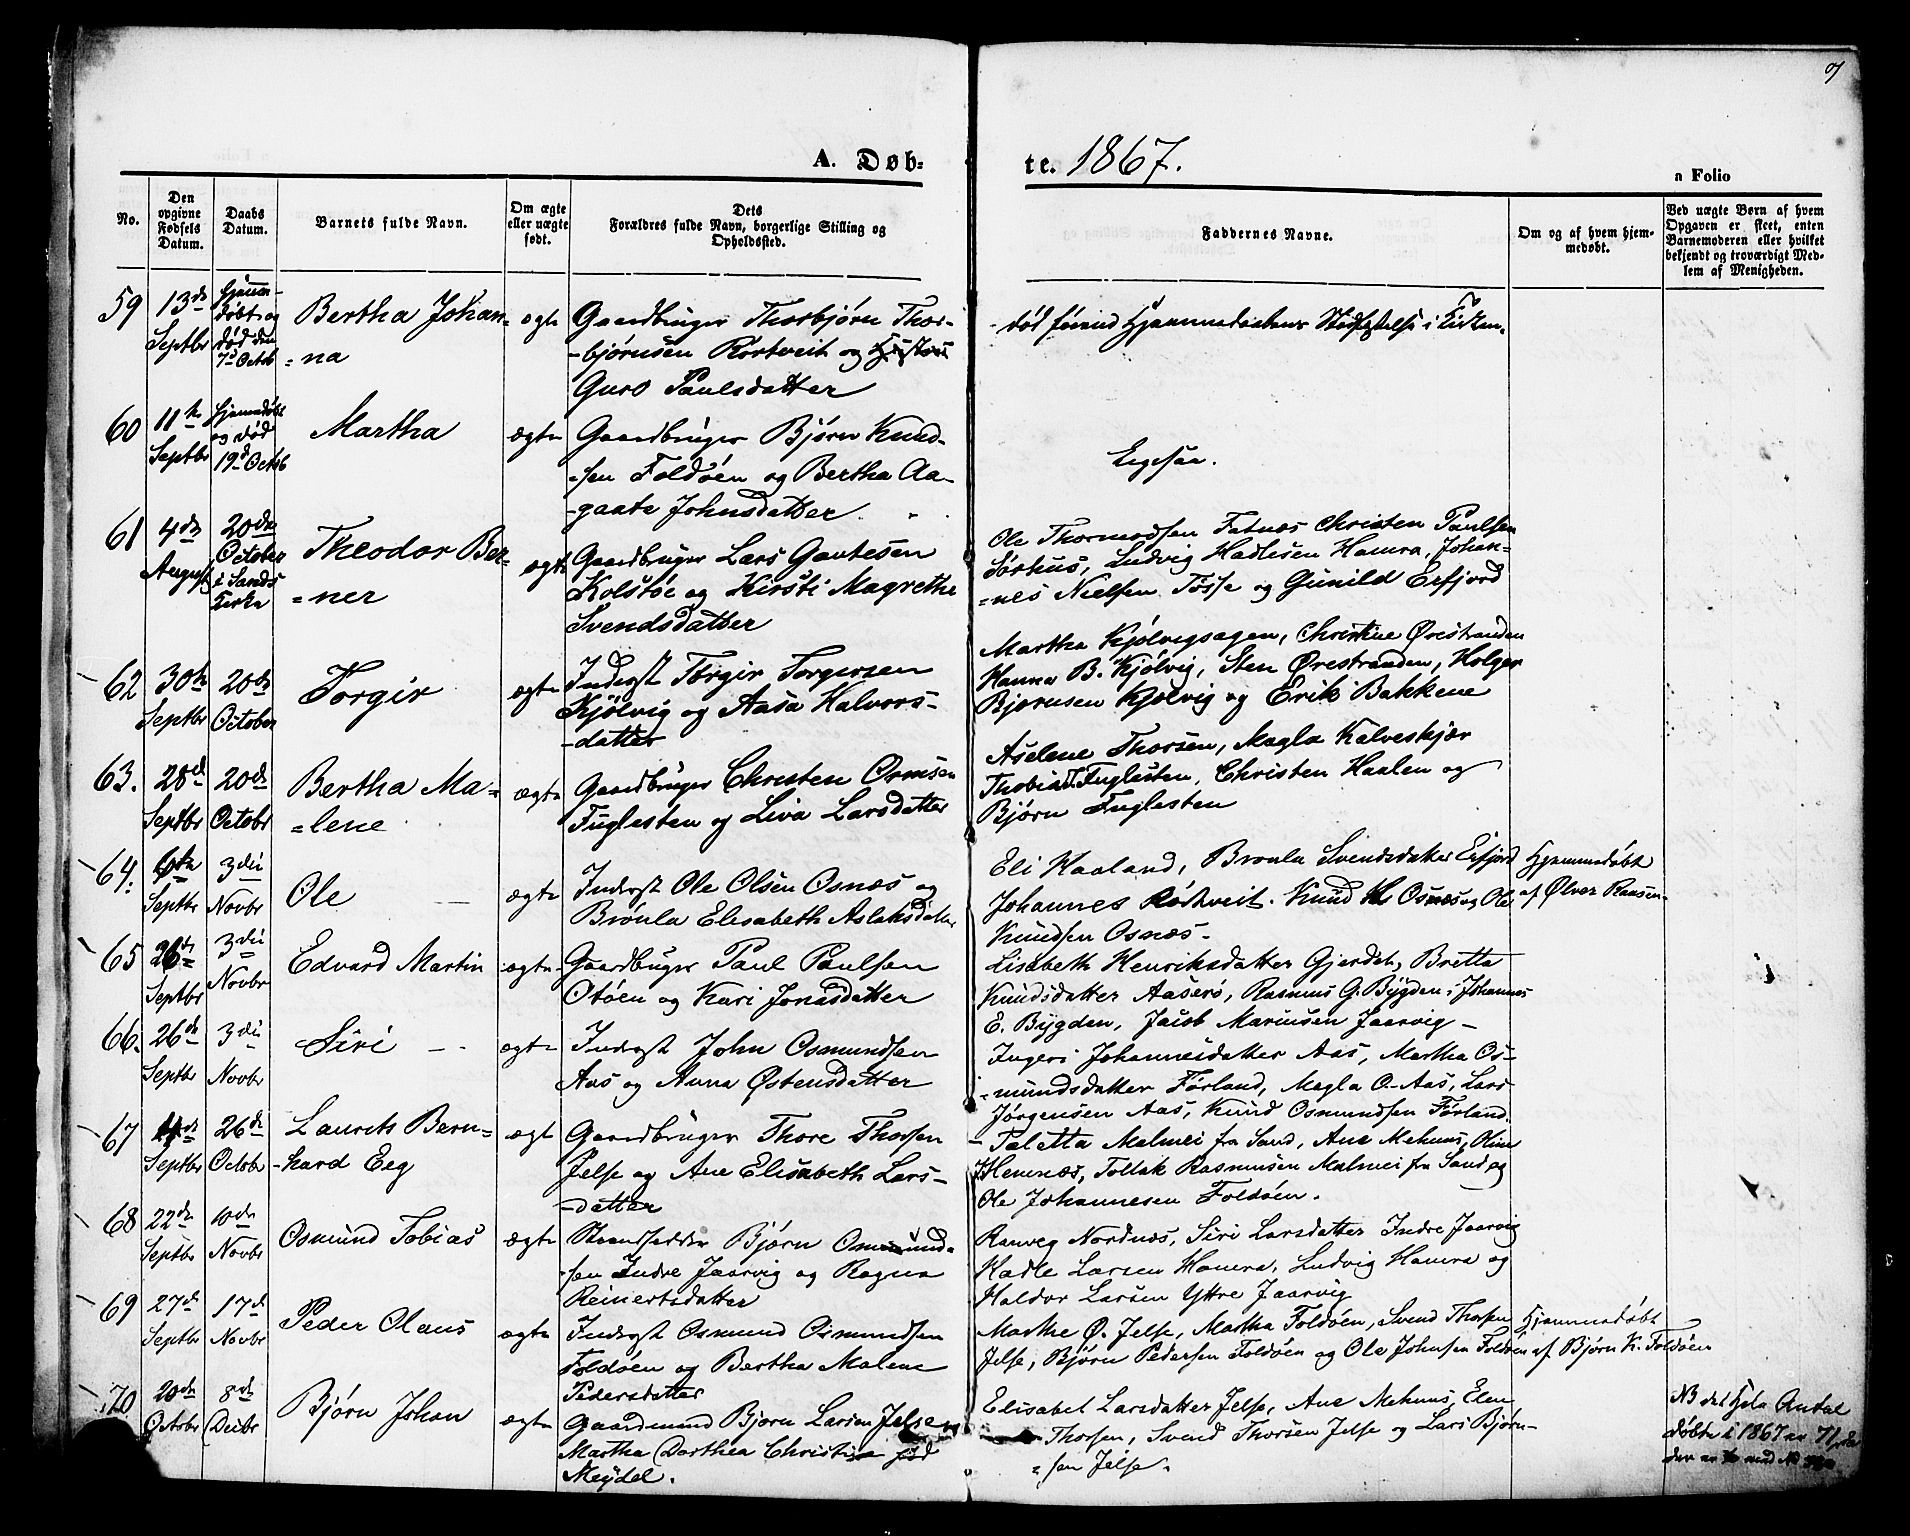 7
A. Døb-
te. 1867.
a Folio
No.
Den opgivne Fødsels Datum.
Daabs Datum.
Barnets fulde Navn.
Om ægte eller uægte født.
Dets Forældres fulde Navn, borgerlige Stilling og Opholdsted.
Faddernes Navne.
Om og af hvem hjemmedøbt.
Ved uægte Børn af hvem Opgaven er skeet, enten Barnemoderen eller hvilket bekjendt og troværdigt Medlem af Menigheden.
59
13de Septbr
Hjemmedøbt og død den 7d Octob
Bertha Johan-
=na
ægte
Gaardbruger Thorbjørn Thor-
-bjørnsen Rørtveit og
Guro Paulsdatter
død førend Hjemmedaabens Stadfæstelse i Kirken.
60
11te Septbr
Hjemmedøbt og død 19d Octob
Martha
ægte
Gaardbruger Bjørn Knud-
-sen Foldøen og Bertha Aa-
-gaate Johnsdatter
Ligesaa.
61
4de August
20de October i Sands Kirke
Theodor Ber-
=ner
ægte
Gaardbruger Lars Gautesen
Kolstøe og Kirsti Magrethe
Svendsdatter
Ole Thormodsen Fatnæs Christen Paulsen
Sørhus, Ludvig Hadlesen Hamra, Johan-
=nes Nielsen Tøsse og Gunild Erfjord
62
30te Septbr
20de October
Torgir
ægte
Inderst Torgir Torgersen
Kjølvig og Aasa Halvors-
-datter
Martha Kjølvigsagen, Christine Ørestranden
Hanna B. Kjølvig, Sten Ørestranden, Holger
Bjørnsen Kjølvig og Erik Bakkene
63.
28de Septbr
20de Octobr
Bertha Ma-
=lene
ægte
Gaardbruger Christen Ormsen
Fuglesten og Liva Larsdatter
Aselene Thorsen, Magla Kalveskjær
Thobias Fuglesten, Christen Haalen og
Bjørn Fuglesten
64.
6te Septbr
3die Novbr
Ole
ægte
Inderst Ole Olsen Osnæs og
Brønla Elisabeth Aslaksdatter
Eli Haaland, Bronla Svendsdatter Erfjord
Johannes Røthveit. Knud Osnæs og Ole
Knudsen Osnæs.
Hjemmedøbt
af Ølver Raasen
65
26de Septbr
3die Novbr
Edvard Martin
ægte
Gaardbruger Paul Paulsen
Otøen og Kari Jonasdatter
Lisabeth Henriksdatter Gjerdet, Bretta
Knudsdatter Aaserø, Rasmus G. Bygden, Johannes
E. Bygden, Jacob Mariusen Jaarvig
66.
26de Septbr
3die Novbr
Siri
ægte
Inderst John Osmundsen
Aas og Anna Østensdatter
Ingeri Johannesdatter Aas, Martha Os-
-mundsdatter Førland, Magla O. Aas, Lars
Jørgensen Aas, Knud Osmundsen Førland.
67
4de Septbr
26de Octobr
Laurits Bern-
-hard Eeg
ægt
Gaardbruger Thore Thorsen
Jelse og Ane Elisabeth Lars-
-datter
Taletta Malmei fra Sand, Ane Mehuus, Oline
Hemnæs, Tollak Rasmussen Malmei fra Sand og
Ole Johannesen Foldøen.
68
22de Septbr
10de Novbr
Osmund Tobias
ægte
Strandsidder Bjørn Osmund-
-sen Indre Jaarvig og Ragna
Reinertsdatter
Ranveg Nordnæs, Siri Larsdatter Indre Jaarvig
Hadle Larsen Hamra, Ludvig Hamra og
Haldor Larsen Yttre Jaarvig
69
27de Septbr
17de Novbr
Peder Olaus
ægte
Inderst Osmund Osmundsen
Foldøen og Bertha Malene
Pedersdatter
Marthe Ø. Jelse, Martha Foldøen, Svend Thorsen
Jelse, Bjørn Pedersen Foldøen og Ole Johnsen Foldøen
Hjemmedøbt
af Bjørn K. Foldøen
70
20de Octobr
8de Decbr
Bjørn Johan
ægte
Gaardmand Bjørn Larsen Jelse og
Martha Dorthea Christine født
Meydel.
Elisabet Larsdatter Jelse, Ane Mehuus, Elen
Thorsen, Svend Thorsen Jelse og Lars Bjørn-
=sen Jelse.
NB det hele Antal
døbte i 1867 er 71